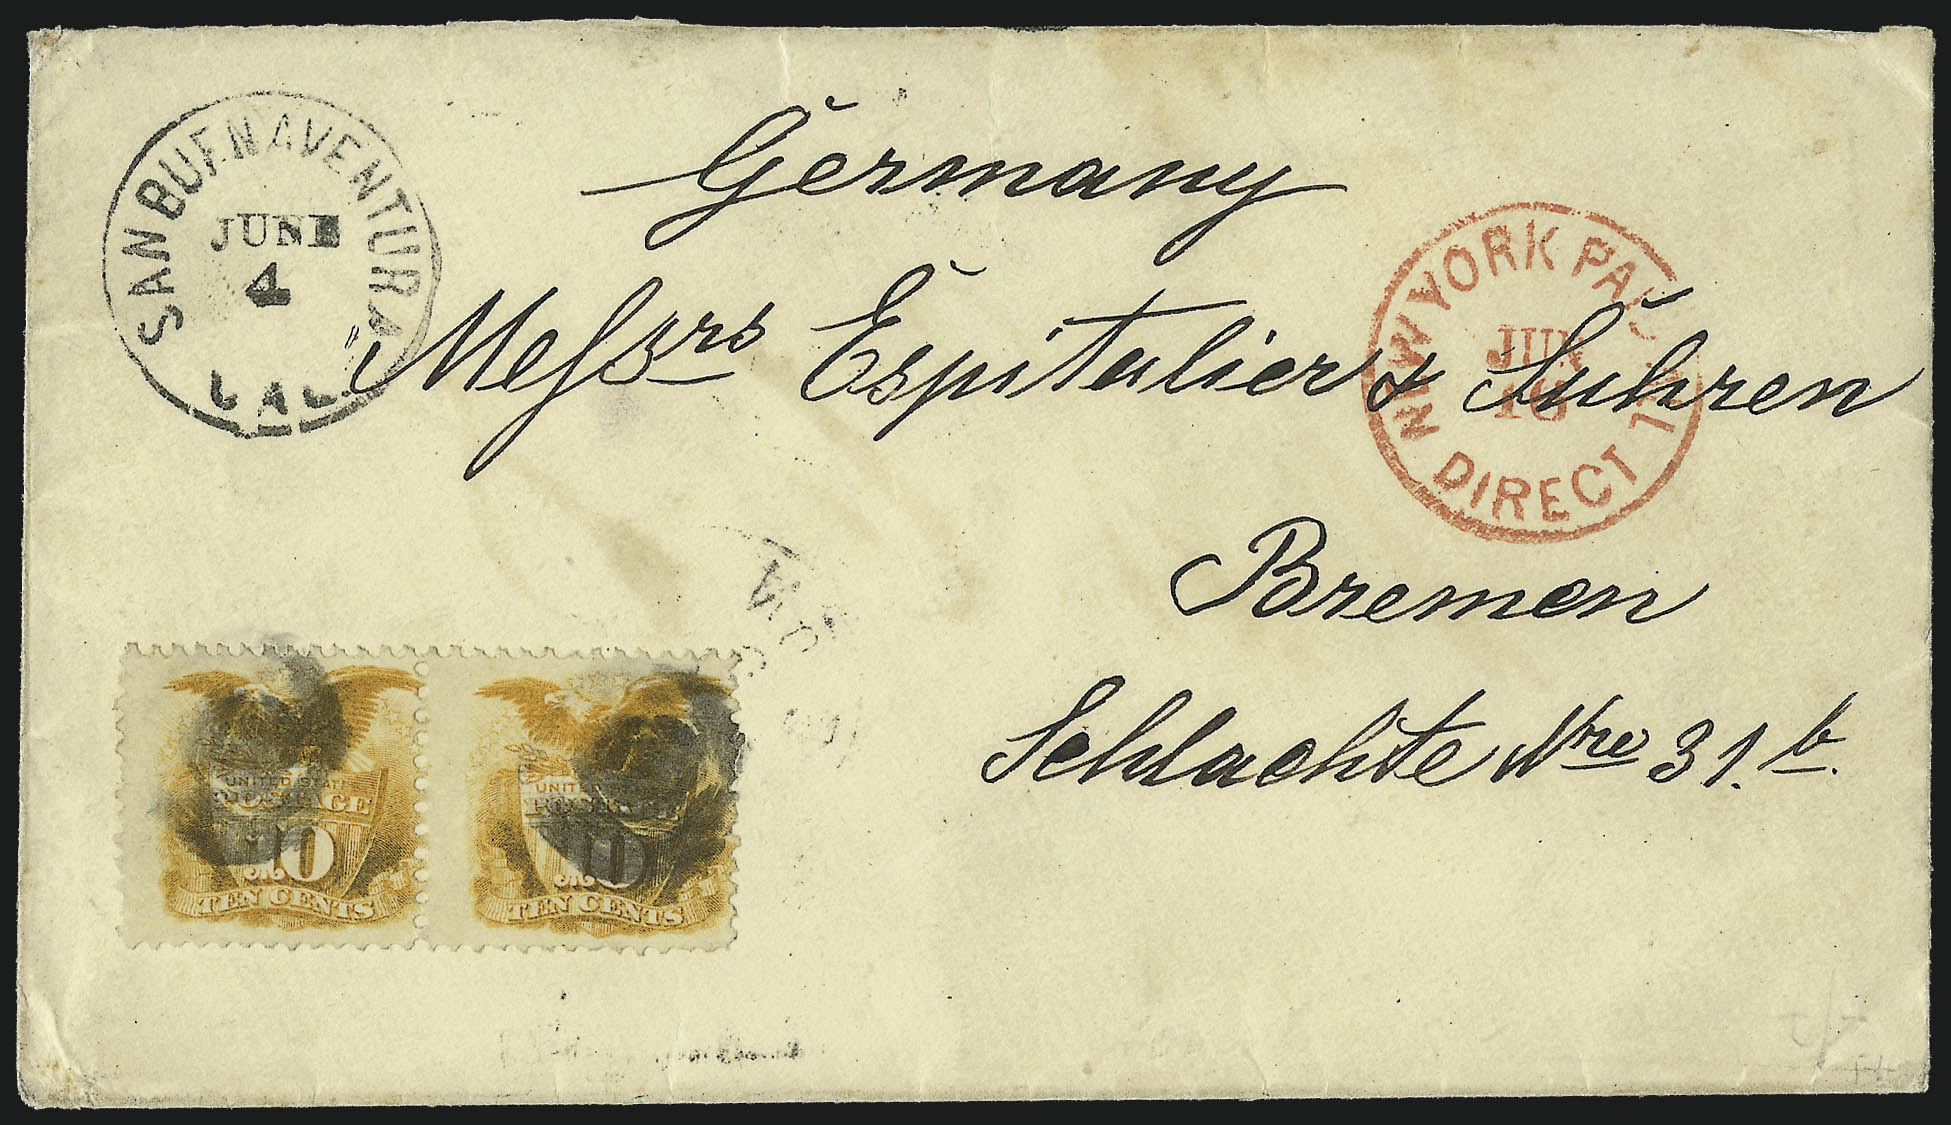 SAN BUENAVENTURA
JUNE
4
CAL.
Germany
Messrs Espitalier & Suhren
NEW YORK PAID ALL
JUN
16
DIRECT
Bremen
Schlachte Nro 31.b.
UNITED STATES
POSTAGE
10
TEN CENTS
UNITED STATES
POSTAGE
10
TEN CENTS